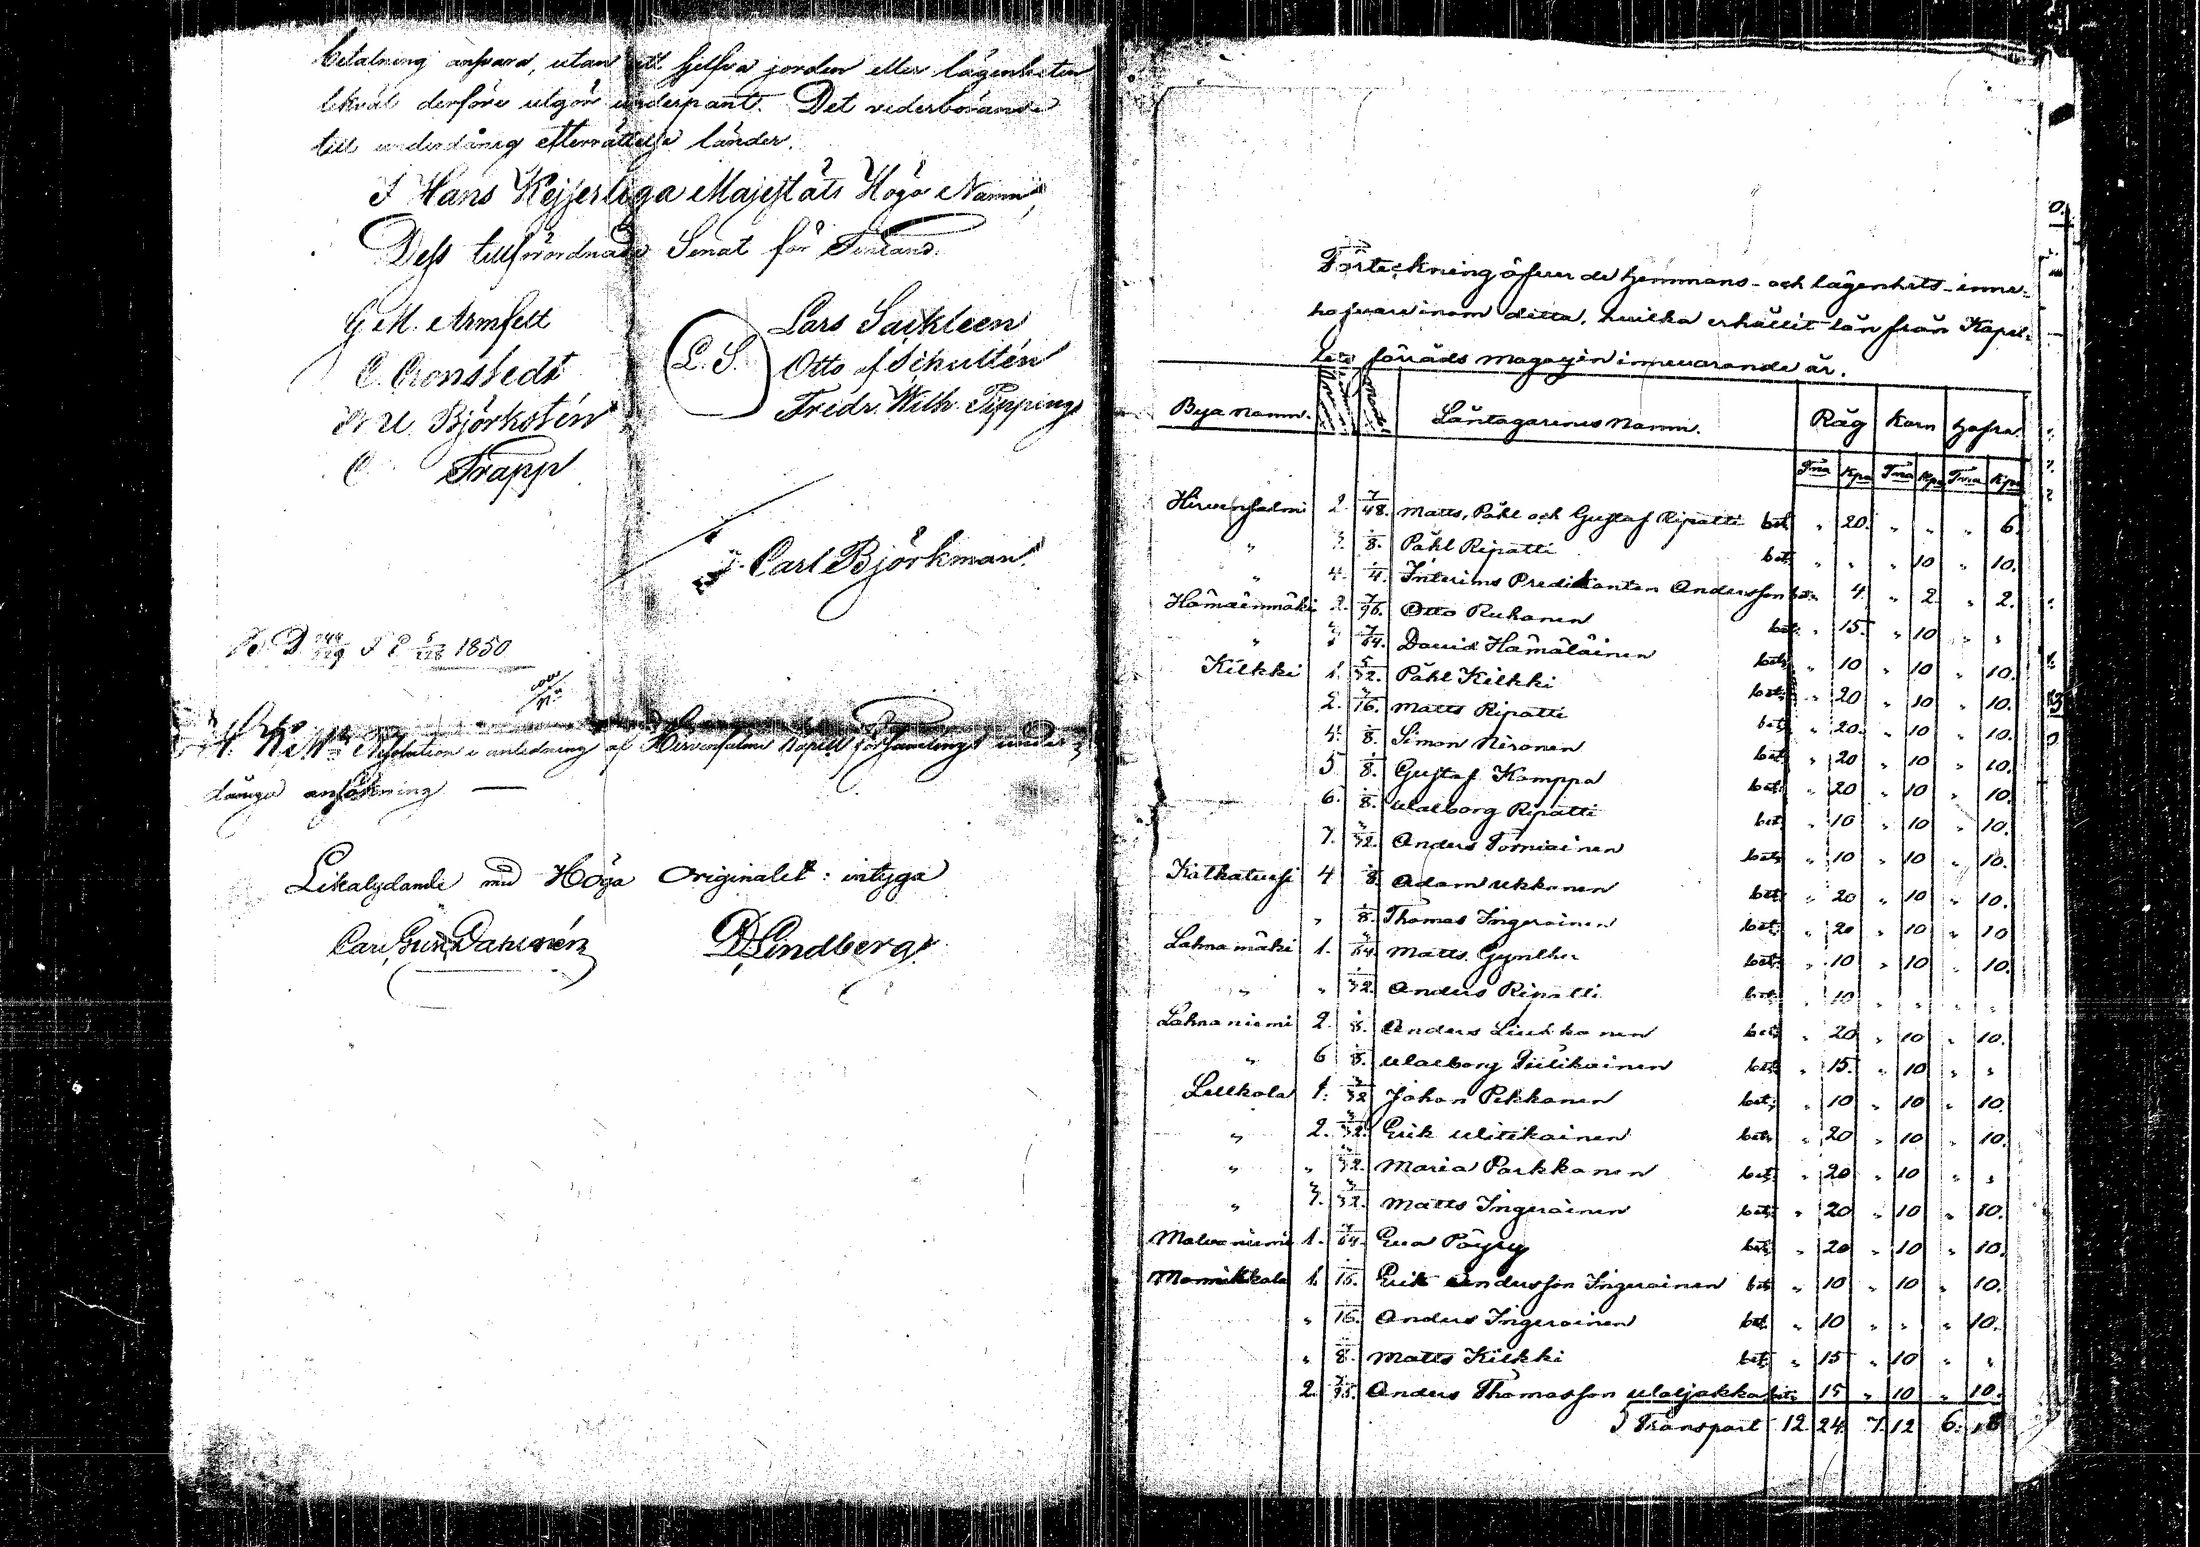 betalning ansvara, utan att sjelfva jorden eller lägenheten
likväl derföre utgör underpant. Det vederbörande
till underdånig efterrättelse länder.
I Hans Kejserliga Majestäts Höga Namn,
Dess tillförordnade Senat för Finland.
G. M. Armfelt
C. Cronstedt
Björkstén
C Trapp
L. S.
Lars Sackleen
Otto af Schultén
Fredr. Wilh. Pipping
Carl Björkman.
1850
Resolution i anledning af Hirvensalmi Kapell församlings under-
dåniga ansökning —
Likalydande med Höga Originalet: intyga
Lindberg
Förteckning öfver de hemmans- och lägenhets-inne-
hafvare inom detta, hvilka erhållit lån från Kapel-
lets förråds magazin innevarande år.
Bya namn. Låntagarenes namn. Råg Korn Hafra.
Tnr Kpr Tnr Kpr Tnr Kpr
Hirvensalmi 2. 7/48. Matts, Påhl och Gustaf Ripatti bet. „ 20. „ „ „ 6.
„ 3. 1/8. Påhl Ripatti bet. „ „ „ 10 „ 10.
„ 4. 1/4. Interims Predikanten Andersson bet. „ 4. „ 2. „ 2.
Hämäenmäki 2. 7/96. Otto Ruhanen bet. „ 15. „ 10 „ „
„ „ 7/64. David Hämäläinen bet. „ 10 „ 10 „ 10.
Kilkki 1. 5/32. Påhl Kilkki bet. „ 20 „ 10 „ 10.
2. 3/16. Matts Ripatti bet. „ 20. „ 10 „ 10.
4. 1/8. Simon Nironen bet. „ 20 „ 10 „ 10.
5 1/8. Gustaf Kamppa bet. „ 20 „ 10 „ 10.
6. 1/8. Walborg Ripatti bet. „ 10 „ 10 „ 10.
7. 3/32. Anders Torniainen bet. „ 10 „ 10 „ 10.
4 1/8. Adam Ukkonen bet. „ 20 „ 10 „ 10.
„ 1/8. Thomas Ingeroinen bet. „ 20 „ 10 „ 10
Lahnamäki 1. /64. Matts Gynther bet. „ 10 „ 10 „ 10.
„ „ /32. Anders Ripatti bet. „ 10 „ „ „ „
Lahnaniemi 2. 1/8. Anders Liukkonen bet. „ 20 „ 10 „ 10.
„ 6 1/8. Walborg Tiilikainen bet. „ 15. „ 10 „ „
Lelkola 1. 3/32 Johan Pekkanen bet. „ 10 „ 10 „ 10.
„ 2. 3/32. Erik Witikainen bet. „ 20 „ 10 „ 10.
„ „ 3/32. Maria Parkkonen bet. „ 20 „ 10 „ „
„ 3. 3/32. Matts Ingeroinen bet. „ 20 „ 10 „ 10.
Malvaniemi 1. 7/64. Eva Pöyry bet. „ 20 „ 10 „ 10.
Monnikkala 1. 1/16. Erik Andersson Ingeroinen bet. „ 10 „ 10 „ 10.
„ 1/16. Anders Ingeroinen bet. „ 10 „ „ „ 10.
„ 1/8. Matts Kilkki bet. „ 15 „ 10 „ „
2. Anders Thomasson Waljakka bet. „ 15 „ 10 „ 10.
Transport 12. 24. 7. 12 6. 18